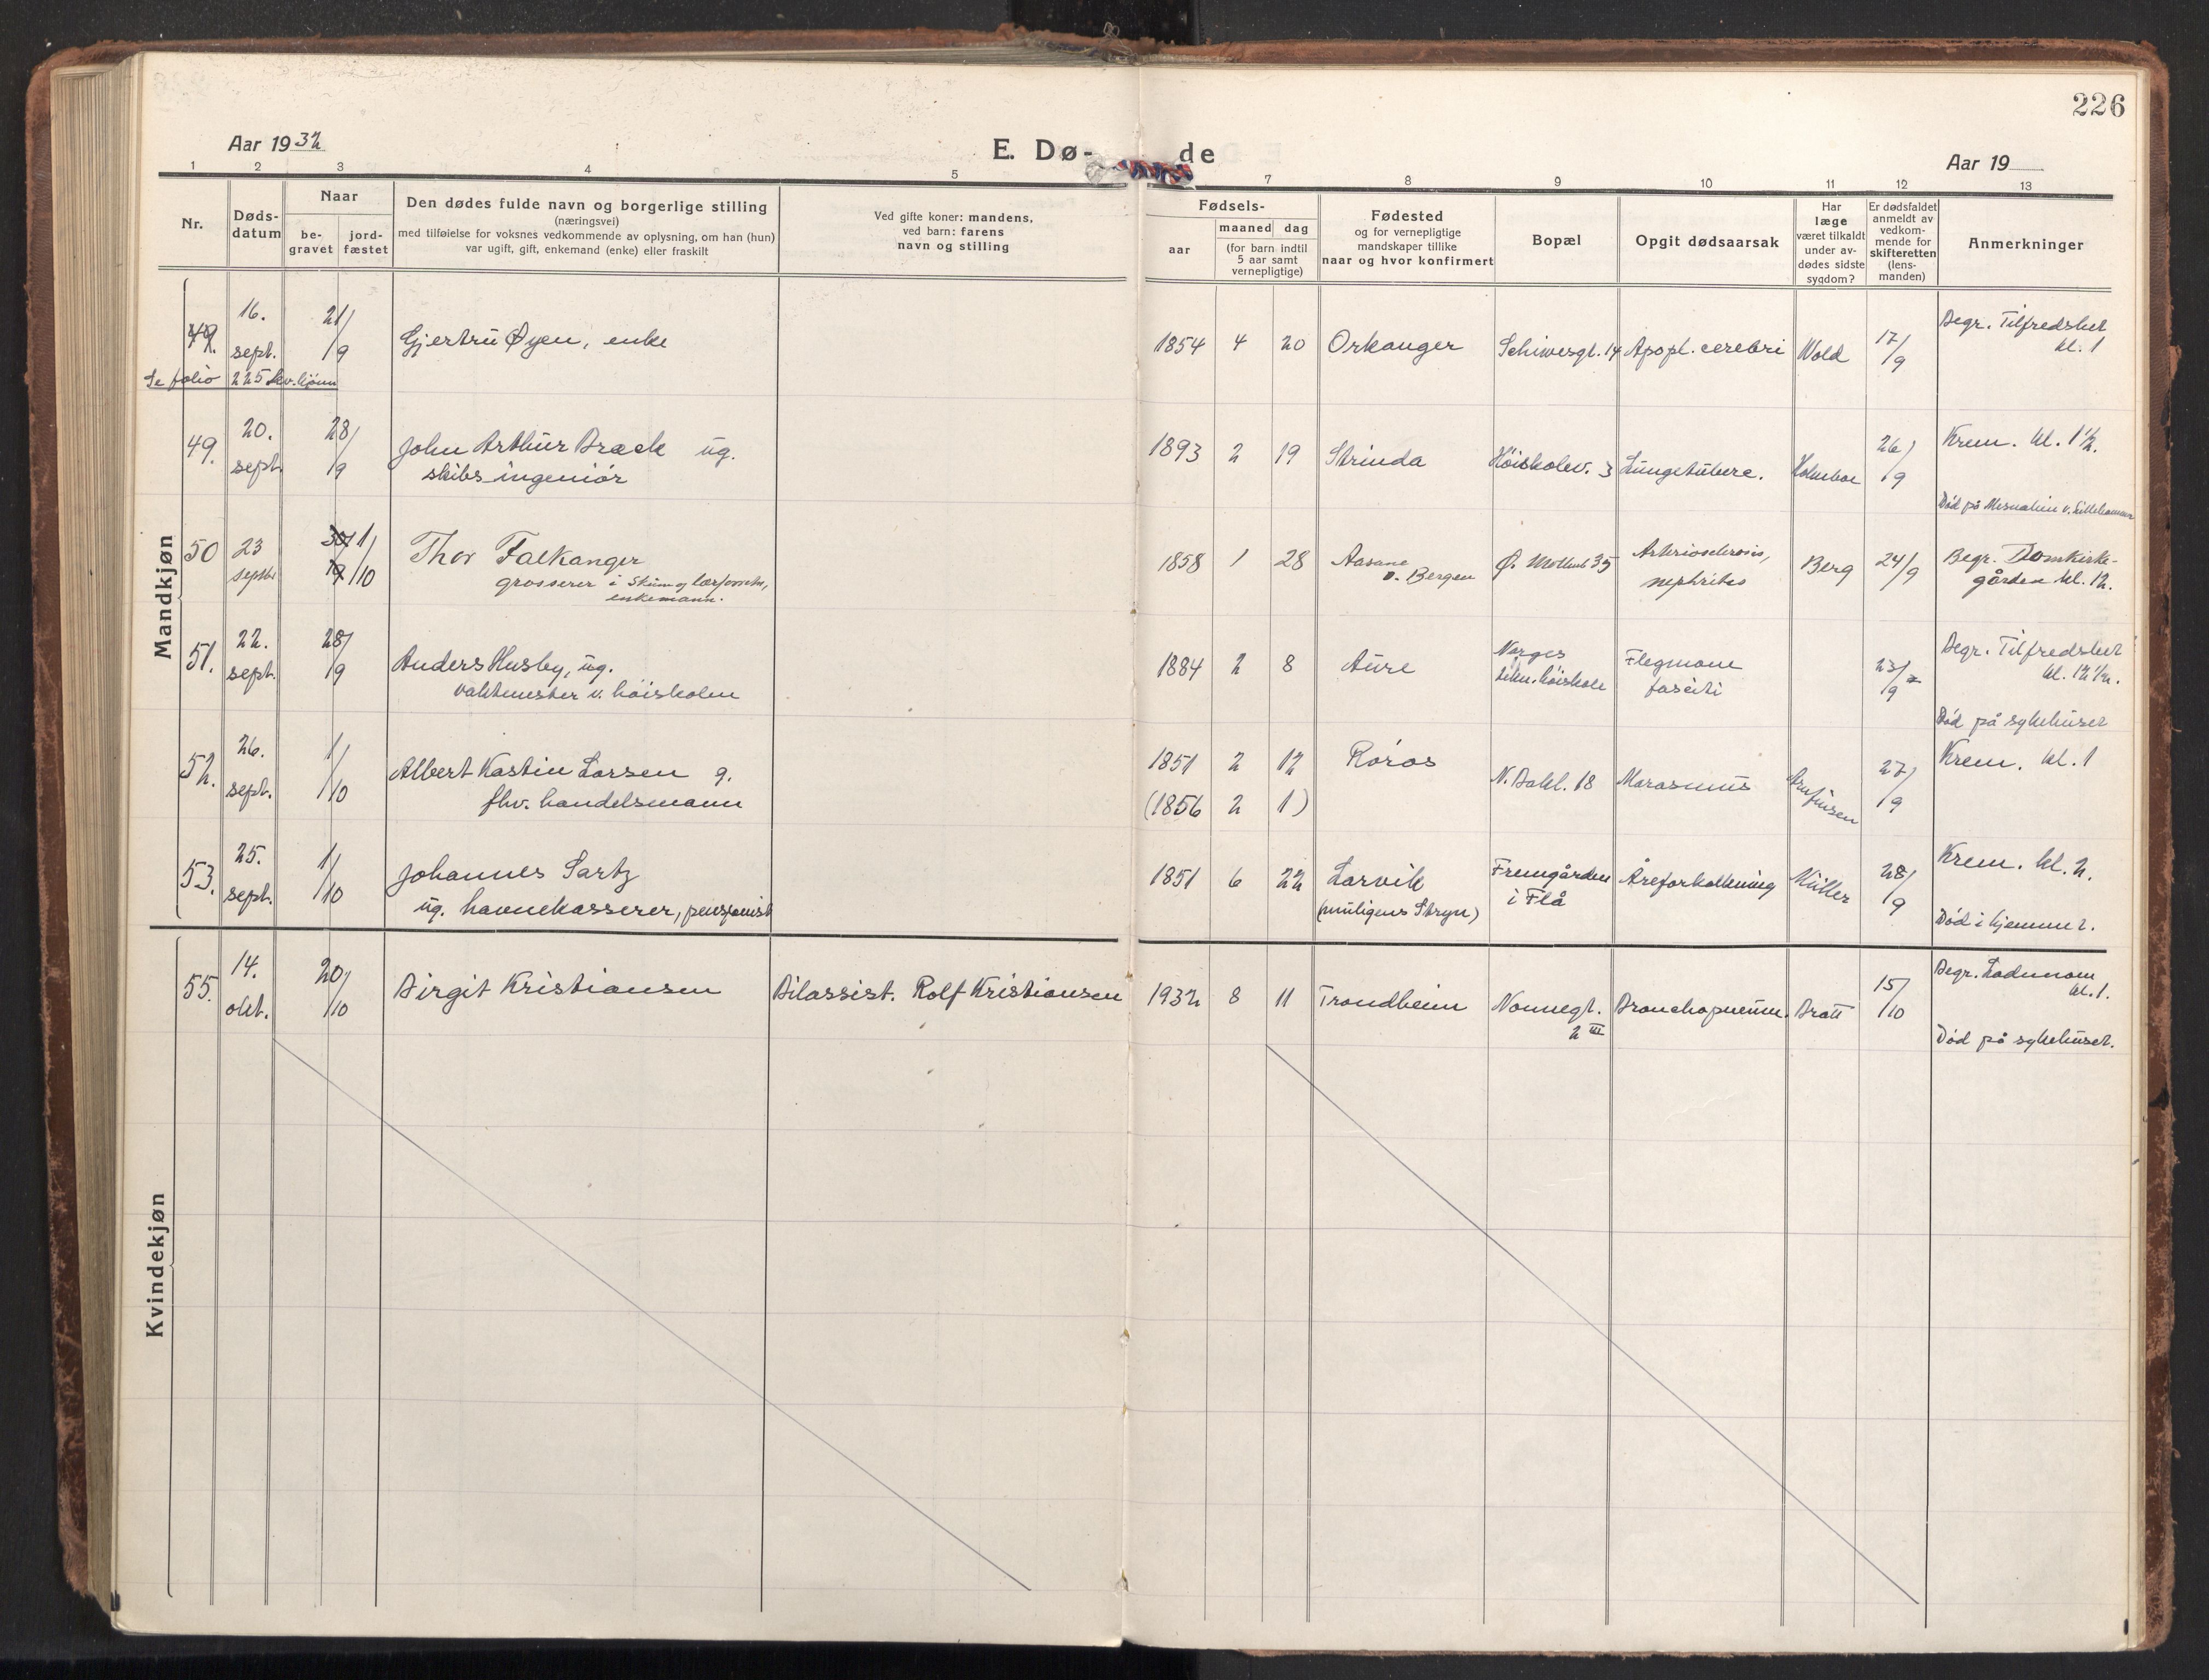 226
Aar 1932
E. Dø-
de
Aar 19
1 2 3 4 5 7 8 9 10 11 12 13
Nr.
Døds-
datum
Naar
be-
gravet
jord-
fæstet
Den dødes fulde navn og borgerlige stilling
(næringsvei)
med tilføielse for voksnes vedkommende av oplysning, om han (hun)
var ugift, gift, enkemand (enke) eller fraskilt
Ved gifte koner: mandens,
ved barn: farens
navn og stilling
Fødsels-
aar
maaned dag
(for barn indtil
5 aar samt
vernepligtige)
Fødested
og for vernepligtige
mandskaper tillike
naar og hvor konfirmert
Bopæl
Opgit dødsaarsak
Har
læge
været tilkaldt
under av-
dødes sidste
sygdom?
Er dødsfaldet
anmeldt av
vedkom-
mende for
skifteretten
(lens-
manden)
Anmerkninger
Mandkjøn
49. 16. sept. 21/9
Gjertru Øyen, enke
1854 4 20 Orkanger
Schiwesgt. 14 Apopl. cerebri Wold 17/9
Begr. Tilfredshet
kl. 1
Se folio 225 kv.kjønn
49. 20. sept. 28/9
John Arthur Brack ug.
skibsingeniør
1893 2 19 Strinda
Høiskolev. 3 Lungetuberc. Holmboe 26/9
Krem. kl. 1½.
Død på Mesnalien v. Lillehammer
50 23 septbr 30/9 1/10
Thor Falkanger
grosserer i skinn og lærforretn.,
enkemann.
1858 1 28 Aasane
v. Bergen
Ø. Møllenb 35
Arteriosclerosis,
nephritis
Berg 24/9
Begr. Domkirke-
gården kl. 12.
51. 22. sept. 28/9
Anders Husby, ug.
vaktmester v. høiskolen
1884 2 8 Aure
Norges
tekn. høiskole
Flegmone
fasciti
23/9
Begr. Tilfredshet
kl. 12½.
Død på sykehuset
52. 26. sept. 1/10
Albert Kastin Larsen g.
fhv. handelsmann
1851 2 12 Røros
(1856 2 1)
N. Bakl. 18 Marasmus 27/9
Krem. kl. 1
53. 25. sept. 1/10
Johannes Sartz
ug. havnekasserer, pensjonist
1851 6 22 Larvik
(muligens Stryn)
Fremgården
i Flå
Åreforkalkning Müller 28/9
Krem. kl. 2.
Død i hjemmet.
Kvindekjøn
55. 14. okt. 20/10
Birgit Kristiansen
Bilassist. Rolf Kristiansen
1932 8 11 Trondheim
Nonnegt.
2 III
Bronchopneum. Bratt 15/10
Begr. Lademoen
kl. 1.
Død på sykehuset.